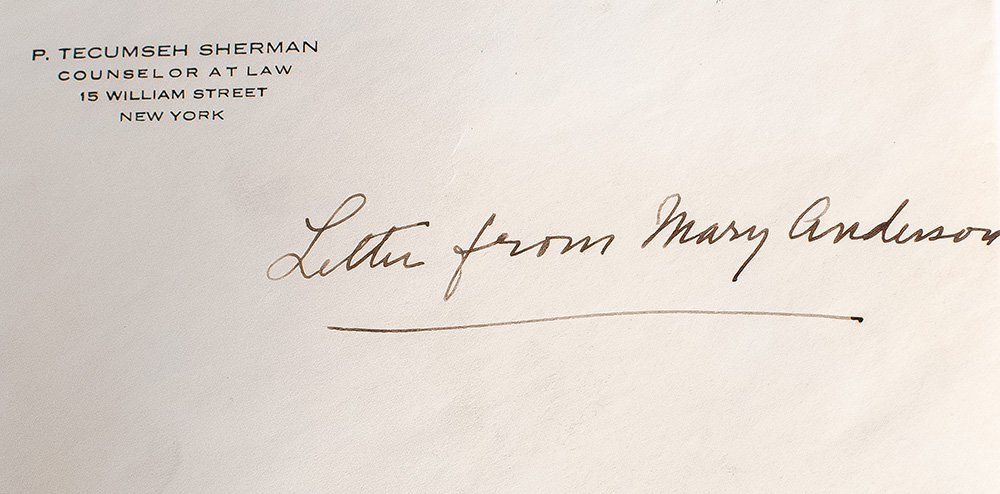 P. TECUMSEH SHERMAN
COUNSELOR AT LAW
15 WILLIAM STREET
NEW YORK
Letter from Mary Anderson